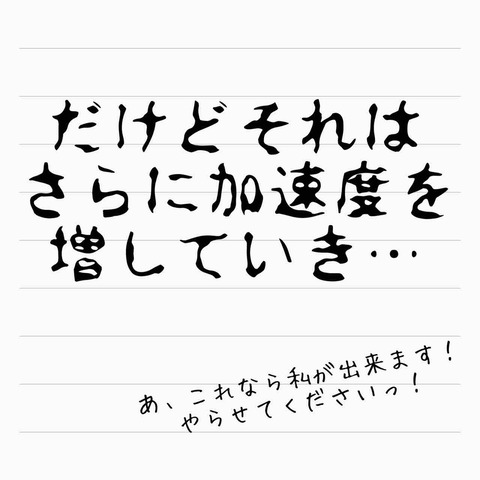 だけどそれは
さらに加速度を
増していき…
あ、これなら私が出来ます！
やらせてくださいっ！